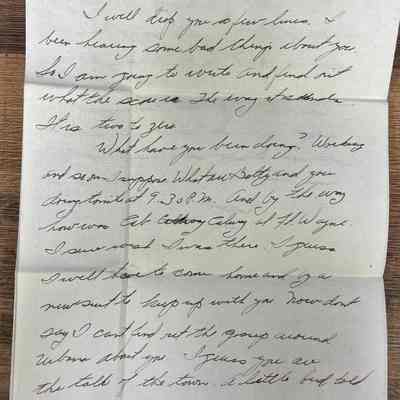 I will drop you a few lines. I
been hearing some bad things about you.
So I am going to write and find out
what the score is. The way it sounds
It is two to zero
What have you been doing? Working
and so on I suppose. What are Dotty and you
doing tonite at 9.30 P.M. And by the way
how was Cab Calloway at Ft. Wayne.
I sure wish I was there. I guess
I will have to come home and buy a
new suit to keep up with you. Now dont
say I cant find out the gossip around
Urbana about you. I guess you are
the talk of the town. A little bird told